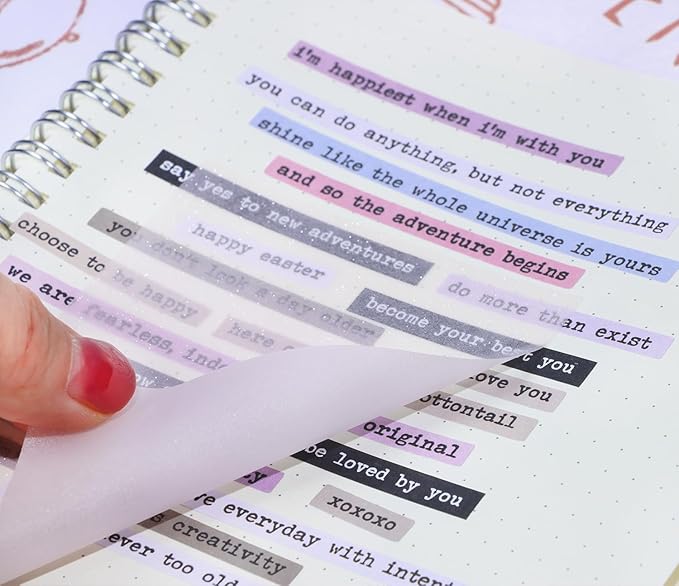 i'm happiest when i'm with you
you can do anything, but not everything
shine like the whole universe is yours
and so the adventure begins
say yes to new adventures
happy easter
do more than exist
you don't look a day older
choose to be happy
become your best you
we are fearless,
here
love you
ottontail
original
be loved by you
xoxoxo
everyday with
creativity
ever too old